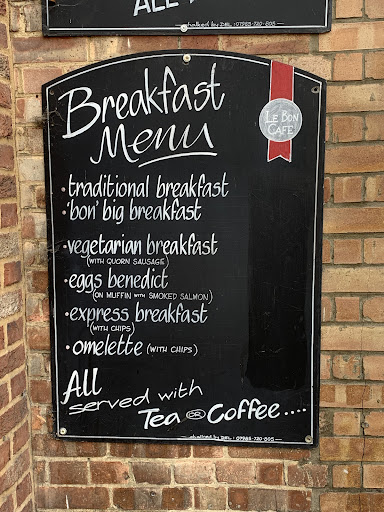 ALL
chalked by DEL : 07985-720-805
Breakfast
Menu
LE BON
CAFE'
• traditional breakfast
• 'bon' big breakfast
• vegetarian breakfast
(WITH QUORN SAUSAGE)
• eggs benedict
(ON MUFFIN WITH SMOKED SALMON)
• express breakfast
(WITH CHIPS)
• omelette (WITH CHIPS)
All
served with
Tea OR Coffee ....
chalked by DEL : 07985-720-805